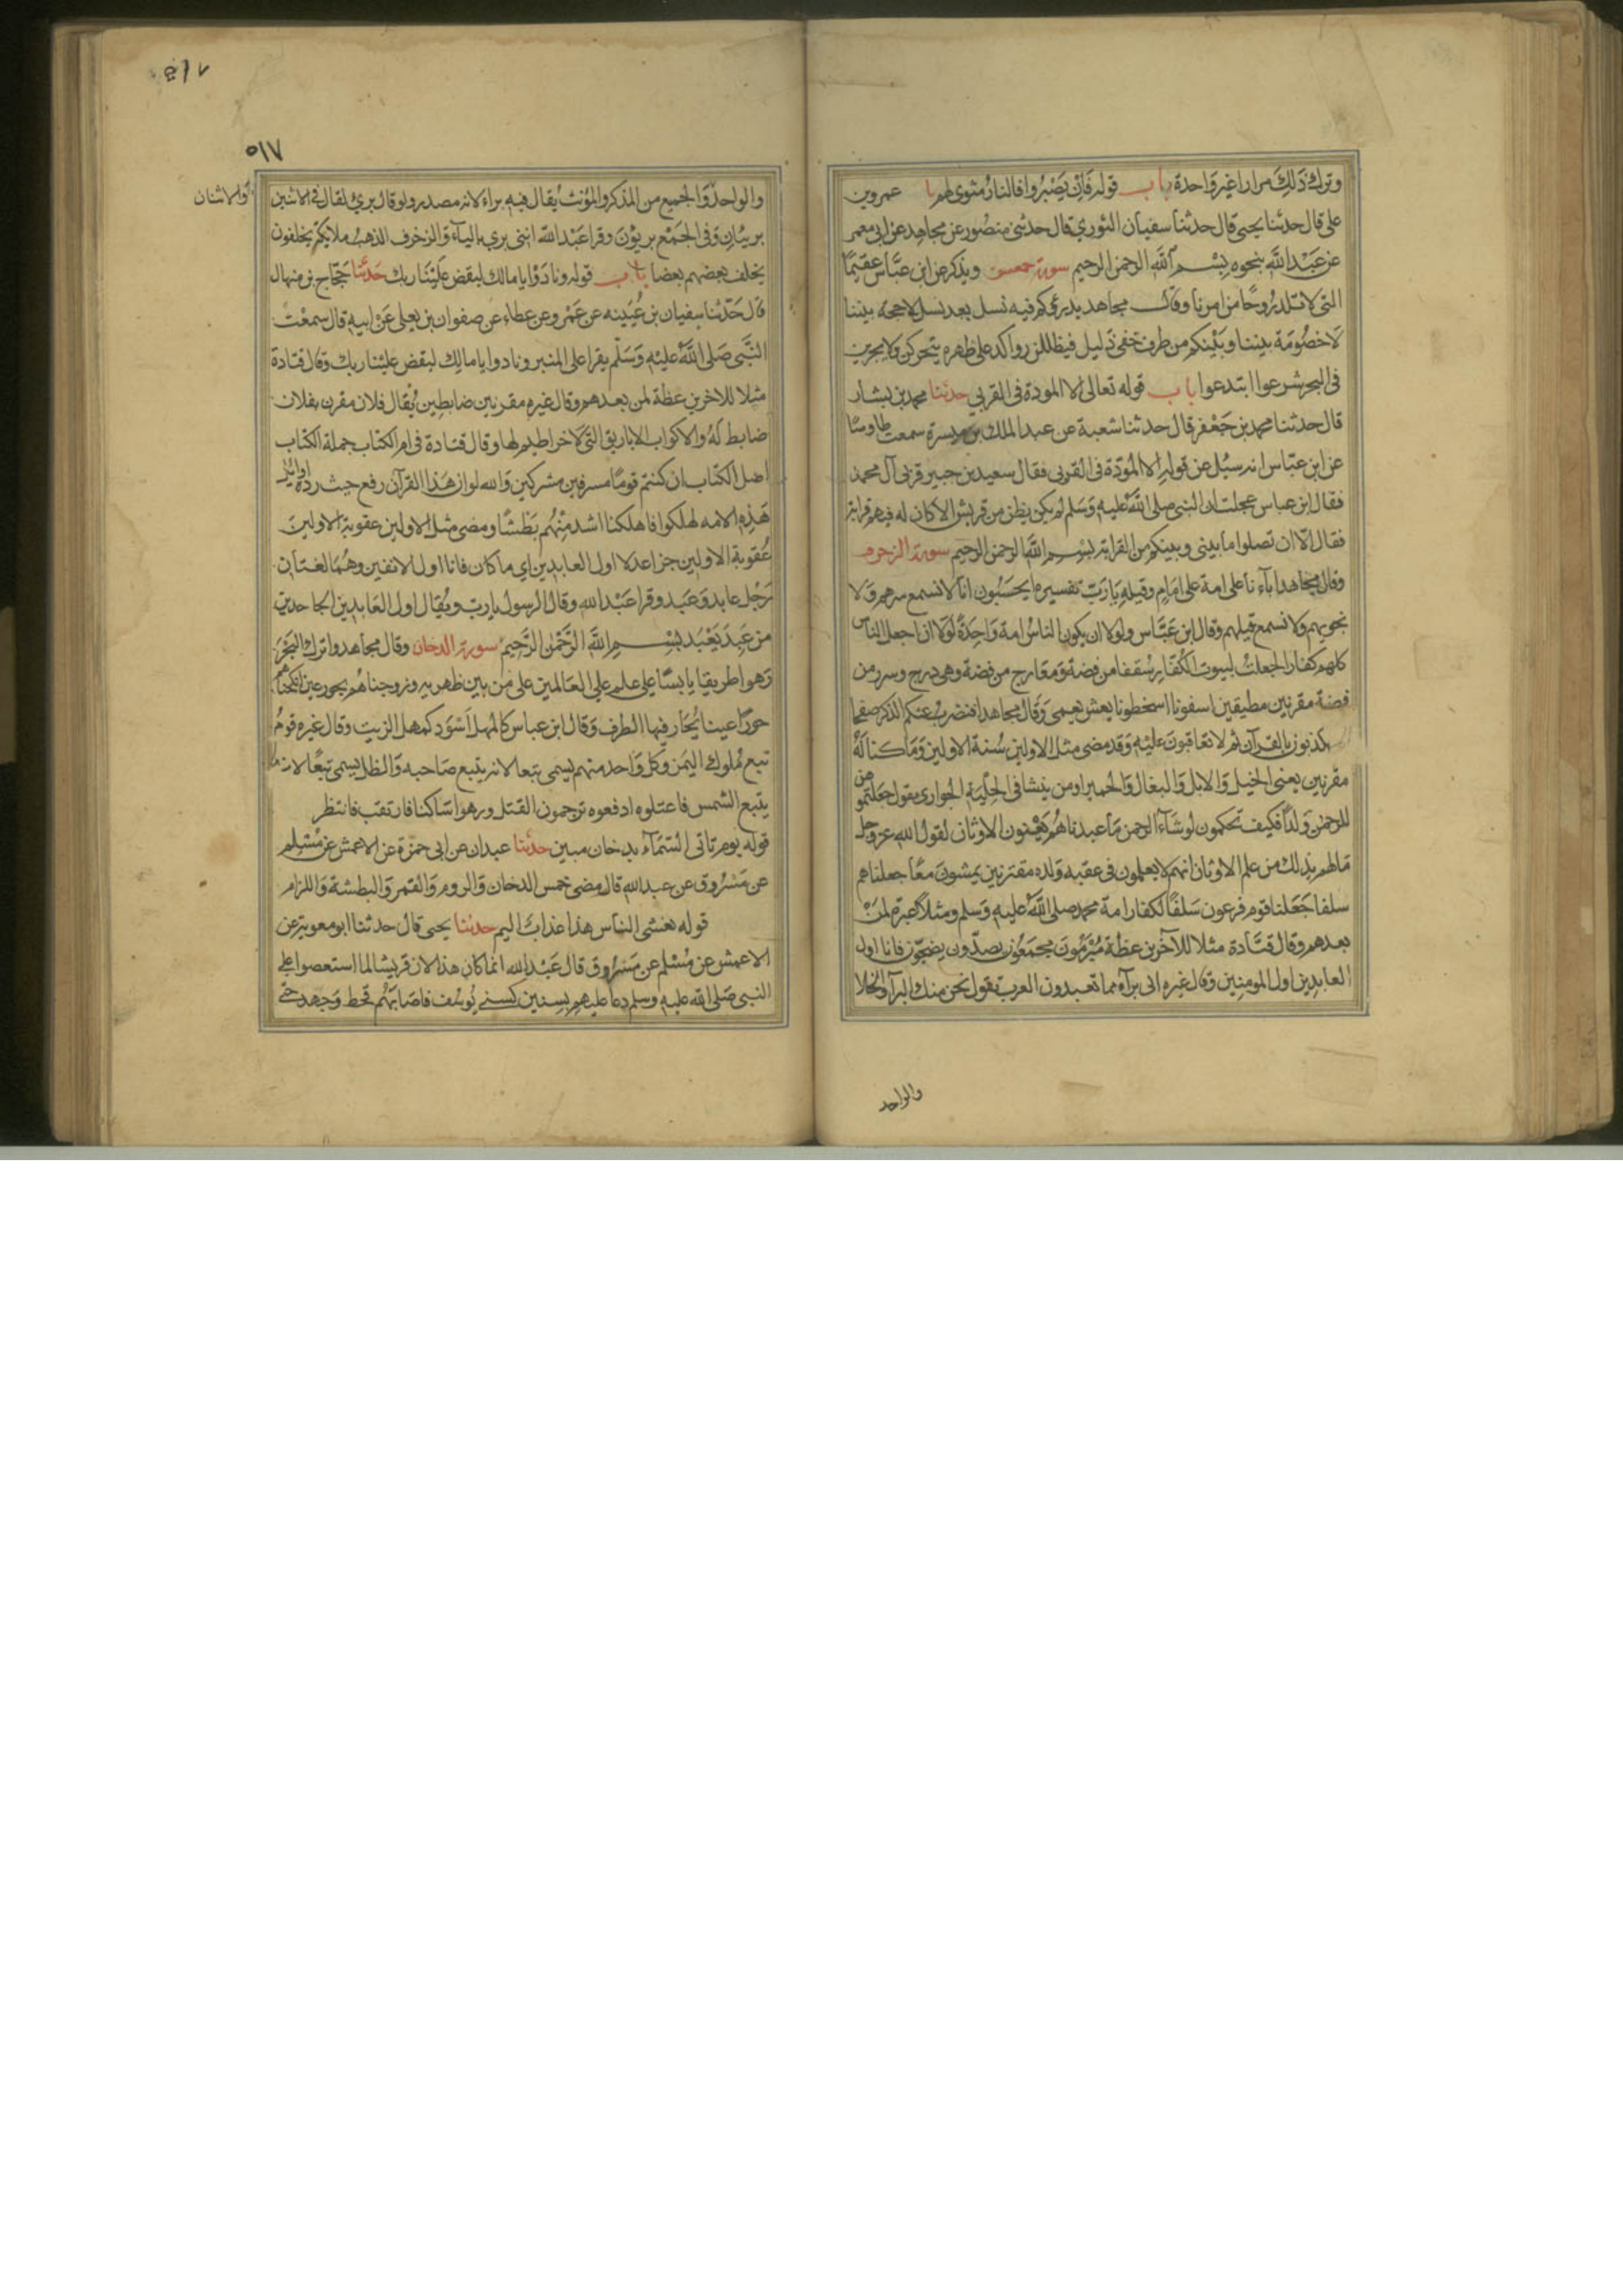 وترك ذلك مرارا غير واحدة باب قوله فان يصبروا فالنار مثوى لهم نا عمرو بن
علي قال حدثنا يحيى قال حدثنا سفيان الثوري قال حدثني منصور عن مجاهد عن ابي معمر
عن عبد الله بنحوه بسم الله الرحمن الرحيم سورة حمعسق ويذكر عن ابن عباس عقيما
التي لا تلد روحا من امرنا وقال مجاهد يذرؤكم فيه نسل بعد نسل لا حجة بيننا
لا خصومة بيننا وبينكم من طرف خفي ذليل فيظللن رواكد على ظهره يتحركن ولا يجرين
في البحر شرعوا ابتدعوا باب قوله تعالى الا المودة في القربى حدثنا محمد بن بشار
قال حدثنا محمد بن جعفر قال حدثنا شعبة عن عبد الملك بن ميسرة سمعت طاوسا
عن ابن عباس انه سئل عن قوله الا المودة في القربى فقال سعيد بن جبير قربى آل محمد
فقال ابن عباس عجلت ان النبي صلى الله عليه وسلم لم يكن بطن من قريش الا كان له فيهم قرابة
فقال الا ان تصلوا ما بيني وبينكم من القرابة بسم الله الرحمن الرحيم سورة الزخرف
وقال مجاهد اباءنا على امة على امام وقيله يا رب تفسيره ايحسبون انا لا نسمع سرهم ولا
نجويهم ولا نسمع قيلهم وقال ابن عباس ولولا ان يكون الناس امة واحدة لولا ان اجعل الناس
كلهم كفارا لجعلت لبيوت الكفار سقفا من فضة ومعارج من فضة وهي درج وسرر من
فضة مقرنين مطيقين اسفونا اسخطونا يعش يعمى وقال مجاهد افنضرب عنكم الذكر صفحا
يكذبون بالقرآن ثم لا تعاقبون عليه وقد مضى مثل الاولين سنة الاولين وما كنا له
مقرنين يعني الخيل والابل والبغال والحمير اومن ينشا في الحلية الجواري يقول جعلتموهن
للرحمن ولدا فكيف تحكمون لو شاء الرحمن ما عبدناهم يعنون الاوثان لقول الله عز وجل
ما لهم بذلك من علم الاوثان انهم لا يعلمون في عقبه ولده مقترنين يمشون معا جعلناهم
سلفا جعلنا قوم فرعون سلفا لكفار امة محمد صلى الله عليه وسلم ومثلا عبرة لمن
بعدهم وقال قتادة مثلا للآخرين عظة مبرمون مجمعون يصدون يضجون فانا اول
العابدين اول المومنين وقال غيره انى براء مما تعبدون العرب تقول نحن منك البراء والخلا
والواحد
٥١٧
٥١٧
والواحد والجميع من المذكر والمؤنث يقال فيه براء لانه مصدر ولو قال بري لقال في الاثنين
والاثنان
بريئان وفي الجمع بريؤن وقرا عبد الله انني بري بالياء والزخرف الذهب ملايكة يخلفون
يخلف بعضهم بعضا باب قوله ونادوا يا مالك ليقض علينا ربك حدثنا حجاج بن منهال
قال حدثنا سفيان بن عيينه عن عمرو عن عطاء عن صفوان بن يعلى عن ابيه قال سمعت
النبي صلى الله عليه وسلم يقرا على المنبر ونادوا يا مالك ليقض علينا ربك وقال قتادة
مثلا للاخرين عظة لمن بعدهم وقال غيره مقرنين ضابطين يقال فلان مقرن بفلان
ضابط له والاكواب الاباريق التي لا خراطيم لها وقال قتادة في ام الكتاب جملة الكتاب
اصل الكتاب ان كنتم قوما مسرفين مشركين والله لو ان هذا القرآن رفع حيث رده اوائل
هذه الامه لهلكوا فاهلكنا اشد منهم بطشا ومضى مثل الاولين عقوبة الاولين
عقوبة الاولين جزا عدلا اول العابدين اي ما كان فانا اول الانفين وهما لغتان
رجل عابد وعبد وقرا عبد الله وقال الرسول يا رب ويقال اول العابدين الجاحدين
من عبد يعبد بسم الله الرحمن الرحيم سورة الدخان وقال مجاهد واترك البحر
رهوا طريقا يابسا على علم على العالمين على من بين ظهريه وزوجناهم بحور عين انكحناهم
حورا عينا يحار فيها الطرف وقال ابن عباس كالمهل اسود كمهل الزيت وقال غيره قوم
تبع ملوك اليمن وكل واحد منهم يسمى تبعا لانه يتبع صاحبه والظل يسمى تبعا لانه
يتبع الشمس فاعتلوه ادفعوه ترجمون القتل ورهوا ساكنا فارتقب فانتظر
قوله يوم تاتي السماء بدخان مبين حدثنا عبدان عن ابي حمزة عن الاعمش عن مسلم
عن مسروق عن عبد الله قال مضى خمس الدخان والروم والقمر والبطشة واللزام
قوله يغشى الناس هذا عذاب اليم حدثنا يحيى قال حدثنا ابو معوية عن
الاعمش عن مسلم عن مسروق قال عبد الله انما كان هذا لان قريشا لما استعصوا على
النبي صلى الله عليه وسلم دعا عليهم بسنين كسني يوسف فاصابهم قحط وجهد حتى